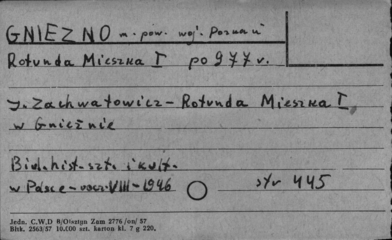 GNIEZNO m. pow. woj. Poznań
Rotunda Mieszka I po 977 r.
J. Zachwatowicz - Rotunda Mieszka I
w Gnieźnie
Biul. hist. szt. i kult.
w Polsce - rocz. VIII - 1946 str 445
Jedn. C.W.D 8/Olsztyn Zam 2776 /on/ 57
Blbk. 2563/57 10.000 szt. karton kl. 7 g 220.